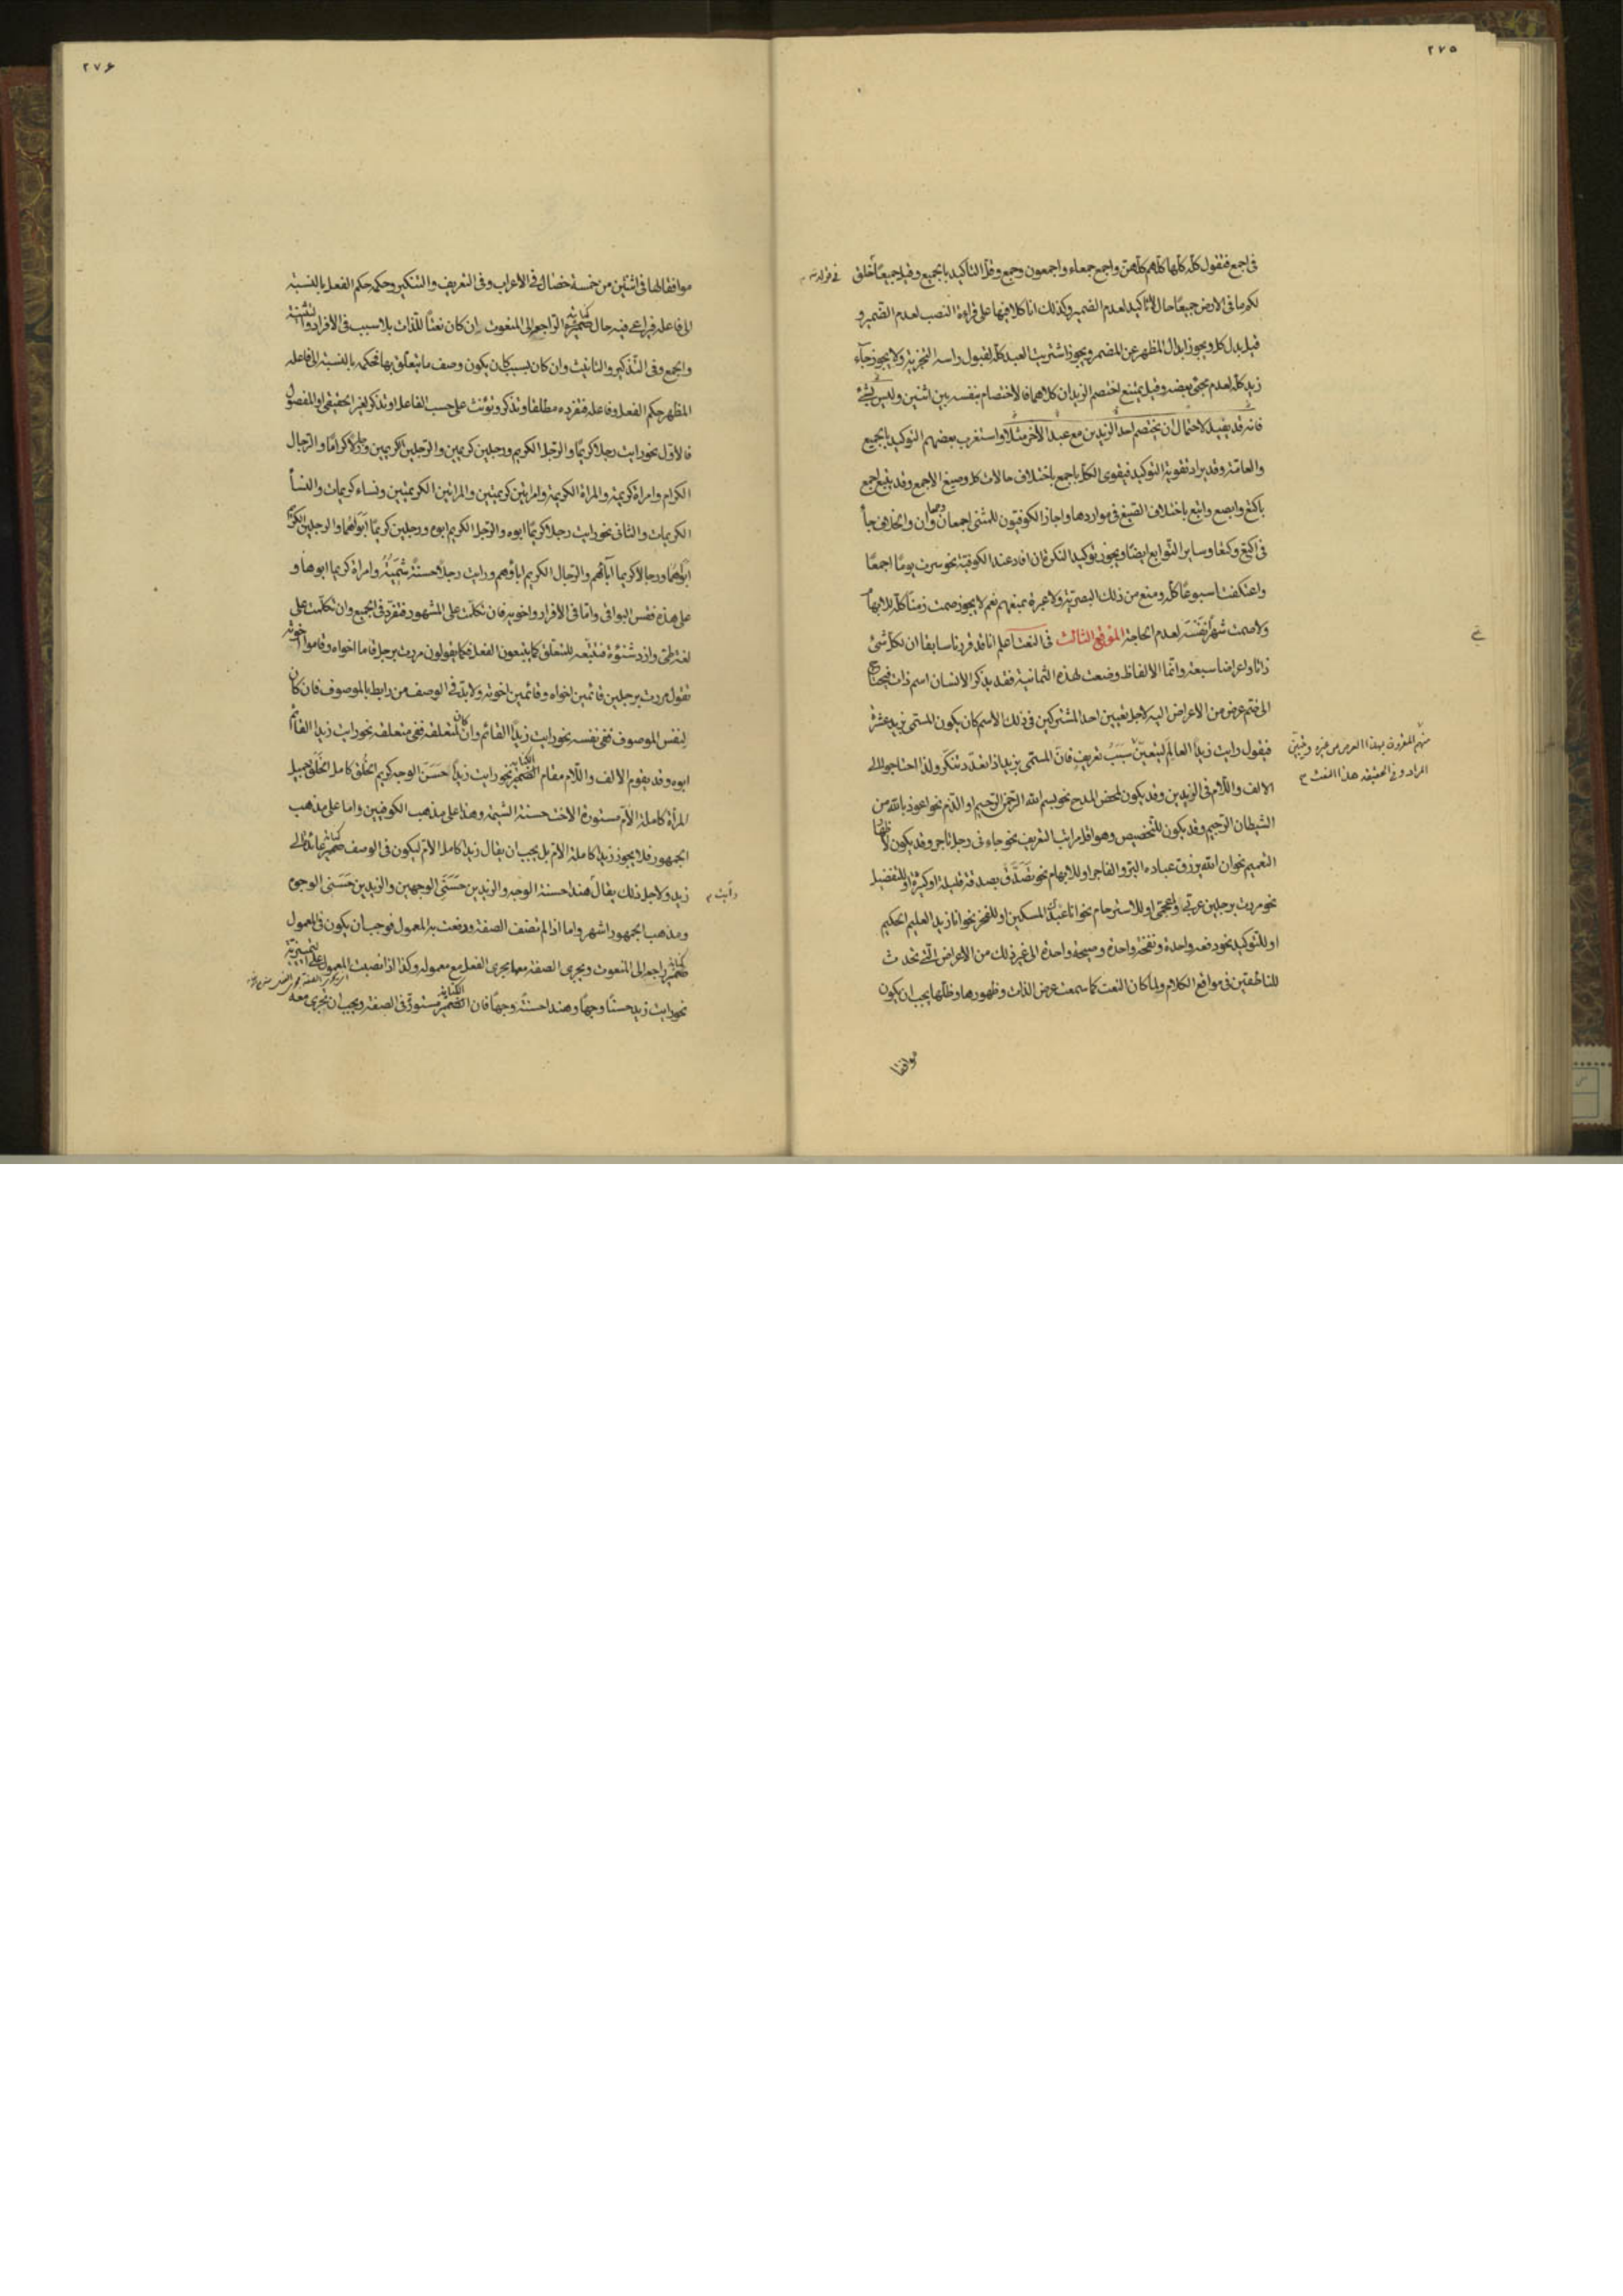 ٢٧٥
فى اجمع فتقول كله كلها كلهم كلهن واجمع جمعاء واجمعون وجمع وقل التاكيد بجميع وقيل جميعا خلق
لكم ما فى الارض جميعا حال لا تاكيد لعدم الضمير وكذلك انا كلا فيها على قراءة النصب لعدم الضمير و
قيل بدل كل ويجوز ابدال المظهر عن المضمر ويجوز اشتريت العبد كله لقبول راسه التجزية ولا يجوز جاء
زيد كله لعدم مجئ بعضه وقيل يمتنع اختصم الزيدان كلاهما فالاختصام بنفسه بين اثنين وليس بشئ
فانه قد يفيد لاحتمال ان يختصم احد الزيدين مع عبد الاخر مثلا واستغرب بعضهم التوكيد بجميع
والعامة وقد يراد تقوية التوكيد فيقوى الكل باجمع باختلاف حالات كل وصيغ الاجمع وقد يتبع اجمع
باكتع وابصع وابتع باختلاف الصيغ فى مواردها واجاز الكوفيون للمثنى اجمعان وجمعاوان والخلاف جاء
فى اكتع وكتعا وساير التوابع ايضا ويجوز توكيد النكرة ان افاد عند الكوفية نحو سرت يوما اجمعا
واعتكفت اسبوعا كله ومنع من ذلك البصرية ولا عبرة بمنعهم نعم لا يجوز صمت زمنا كله للابهام
ولا صمت شهرا نفسه لعدم الحاجة الموقع الثالث فى النعت اعلم انا قد قررنا سابقا ان لكل شئ
ذاتا واعراضا سبعة وانما الالفاظ وضعت لهذه الثمانية فقد يذكر الانسان اسم ذات فيحتاج
الى ضم عرض من الاعراض اليه لاجل تعيين احد المشتركين فى ذلك الاسم كان يكون المسمى بزيد عشرة
فيقول رايت زيدا العالم ليتعين سبب تعريف فان المسمى بزيد اذا تعدد تنكر ولذا احتاجوا الى
الالف واللام فى الزيدين وقد يكون لمحض المدح نحو بسم الله الرحمن الرحيم او الذم نحو اعوذ بالله من
الشيطان الرجيم وقد يكون للتخصيص وهو اقل مراتب التعريف نحو جاء نى رجل تاجر وقد يكون لاظهار
التعميم نحو ان الله يرزق عباده البر والفاجر او للابهام نحو تصدق بصدقة قليلة او كثيرة او للتفضيل
نحو مررت برجلين عربى وعجمى او للاسترحام نحو انا عبدك المسكين او للفخر نحو انا زيد العليم الحكيم
او للتوكيد نحو دفعة واحدة ونفخة واحدة وصيحة واحدة الى غير ذلك من الاعراض التى تحدث
للناطقين فى مواقع الكلام ولما كان النعت كما سمعت عرض الذات وظهورها وظلها يجب ان يكون
موافقا
فى قوله تع
المراد وفى الحقيقة هذا النعت
٢٧۶
موافقا لها فى اثنتين من خمسة خصال فى الاعراب وفى التعريف والتنكير وحكمه حكم الفعل بالنسبة
الى فاعله فيراعى فيه حال ضميره الراجع الى المنعوت ان كان نعتا للذات بلا سبب فى الافراد والتثنية
والجمع وفى التذكير والتانيث وان كان بسبب كان يكون وصف ما يتعلق بها فحكمه بالنسبة الى فاعله
المظهر حكم الفعل وفاعله فتفرده مطلقا وتذكر وتؤنث على حسب الفاعل او تذكر لغير الحقيقى او المفصول
فالاول نحو رايت رجلا كريما والرجل الكريم ورجلين كريمين والرجلين الكريمين ورجالا كراما والرجال
الكرام وامراة كريمة والمراة الكريمة وامراتين كريمتين والمراتين الكريمتين ونساء كريمات والنساء
الكريمات والثانى نحو رايت رجلا كريما ابوه والرجل الكريم ابوه ورجلين كريما ابواهما والرجلين الكريم
ابواهما ورجالا كريما آباؤهم والرجال الكريم اباؤهم ورايت رجلا حسنة شيمته وامراة كريما ابوها و
على هذه فقس البواقى واما فى الافراد واخويه فان تكلمت على المشهور فتفرد فى الجميع وان تكلمت على
لغة طى وازد شنوءة فتتبعه للمتعلق كما يتبعون الفعل فكما يقولون مررت برجل قاما اخواه وقاموا اخوته
تقول مررت برجلين قائمين اخواه وقائمين اخوته ولابد فى الوصف من رابط بالموصوف فان كان
لنفس الموصوف ففى نفسه نحو رايت زيدا القائم وان كان لمتعلقه ففى متعلقه نحو رايت زيدا القائم
ابوه وقد يقوم الالف واللام مقام الضمير نحو رايت زيدا حسن الوجه كريم الخلق كامل الخلق جميل
المراة كاملة الام مستورة الاخت حسنة الشيمة وهذا على مذهب الكوفيين واما على مذهب
الجمهور فلا يجوز زيد كاملة الام بل يجب ان يقال زيد كامل الام ليكون فى الوصف ضمير عائد الى
زيد ولاجل ذلك يقال هند حسنة الوجه والزيدين حسنى الوجهين والزيدين حسنى الوجوه
ومذهب الجمهور اشهر واما اذا لم تضف الصفة ورفعت بها المعمول فوجب ان يكون فى المعمول
ضمير راجع الى المنعوت ويجرى الصفة معها مجرى الفعل مع معموله وكذا اذا نصبت المعمول على التمييزية
نحو رايت زيد حسنا وجها وهند حسنة وجها فان الضمير مستور فى الصفة ويجب ان تجرى معه
رايت